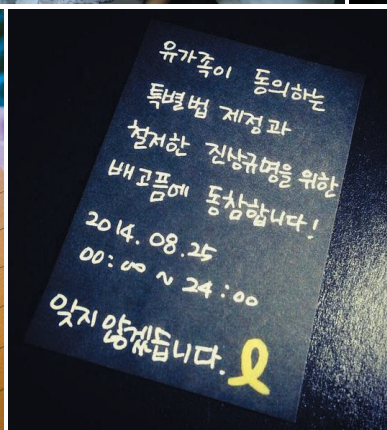 유가족이 동의하는
특별법 제정과
철저한 진상규명을 위한
배고픔에 동참합니다!
2014. 08.25
00:00 ~ 24:00
잊지 않겠습니다.